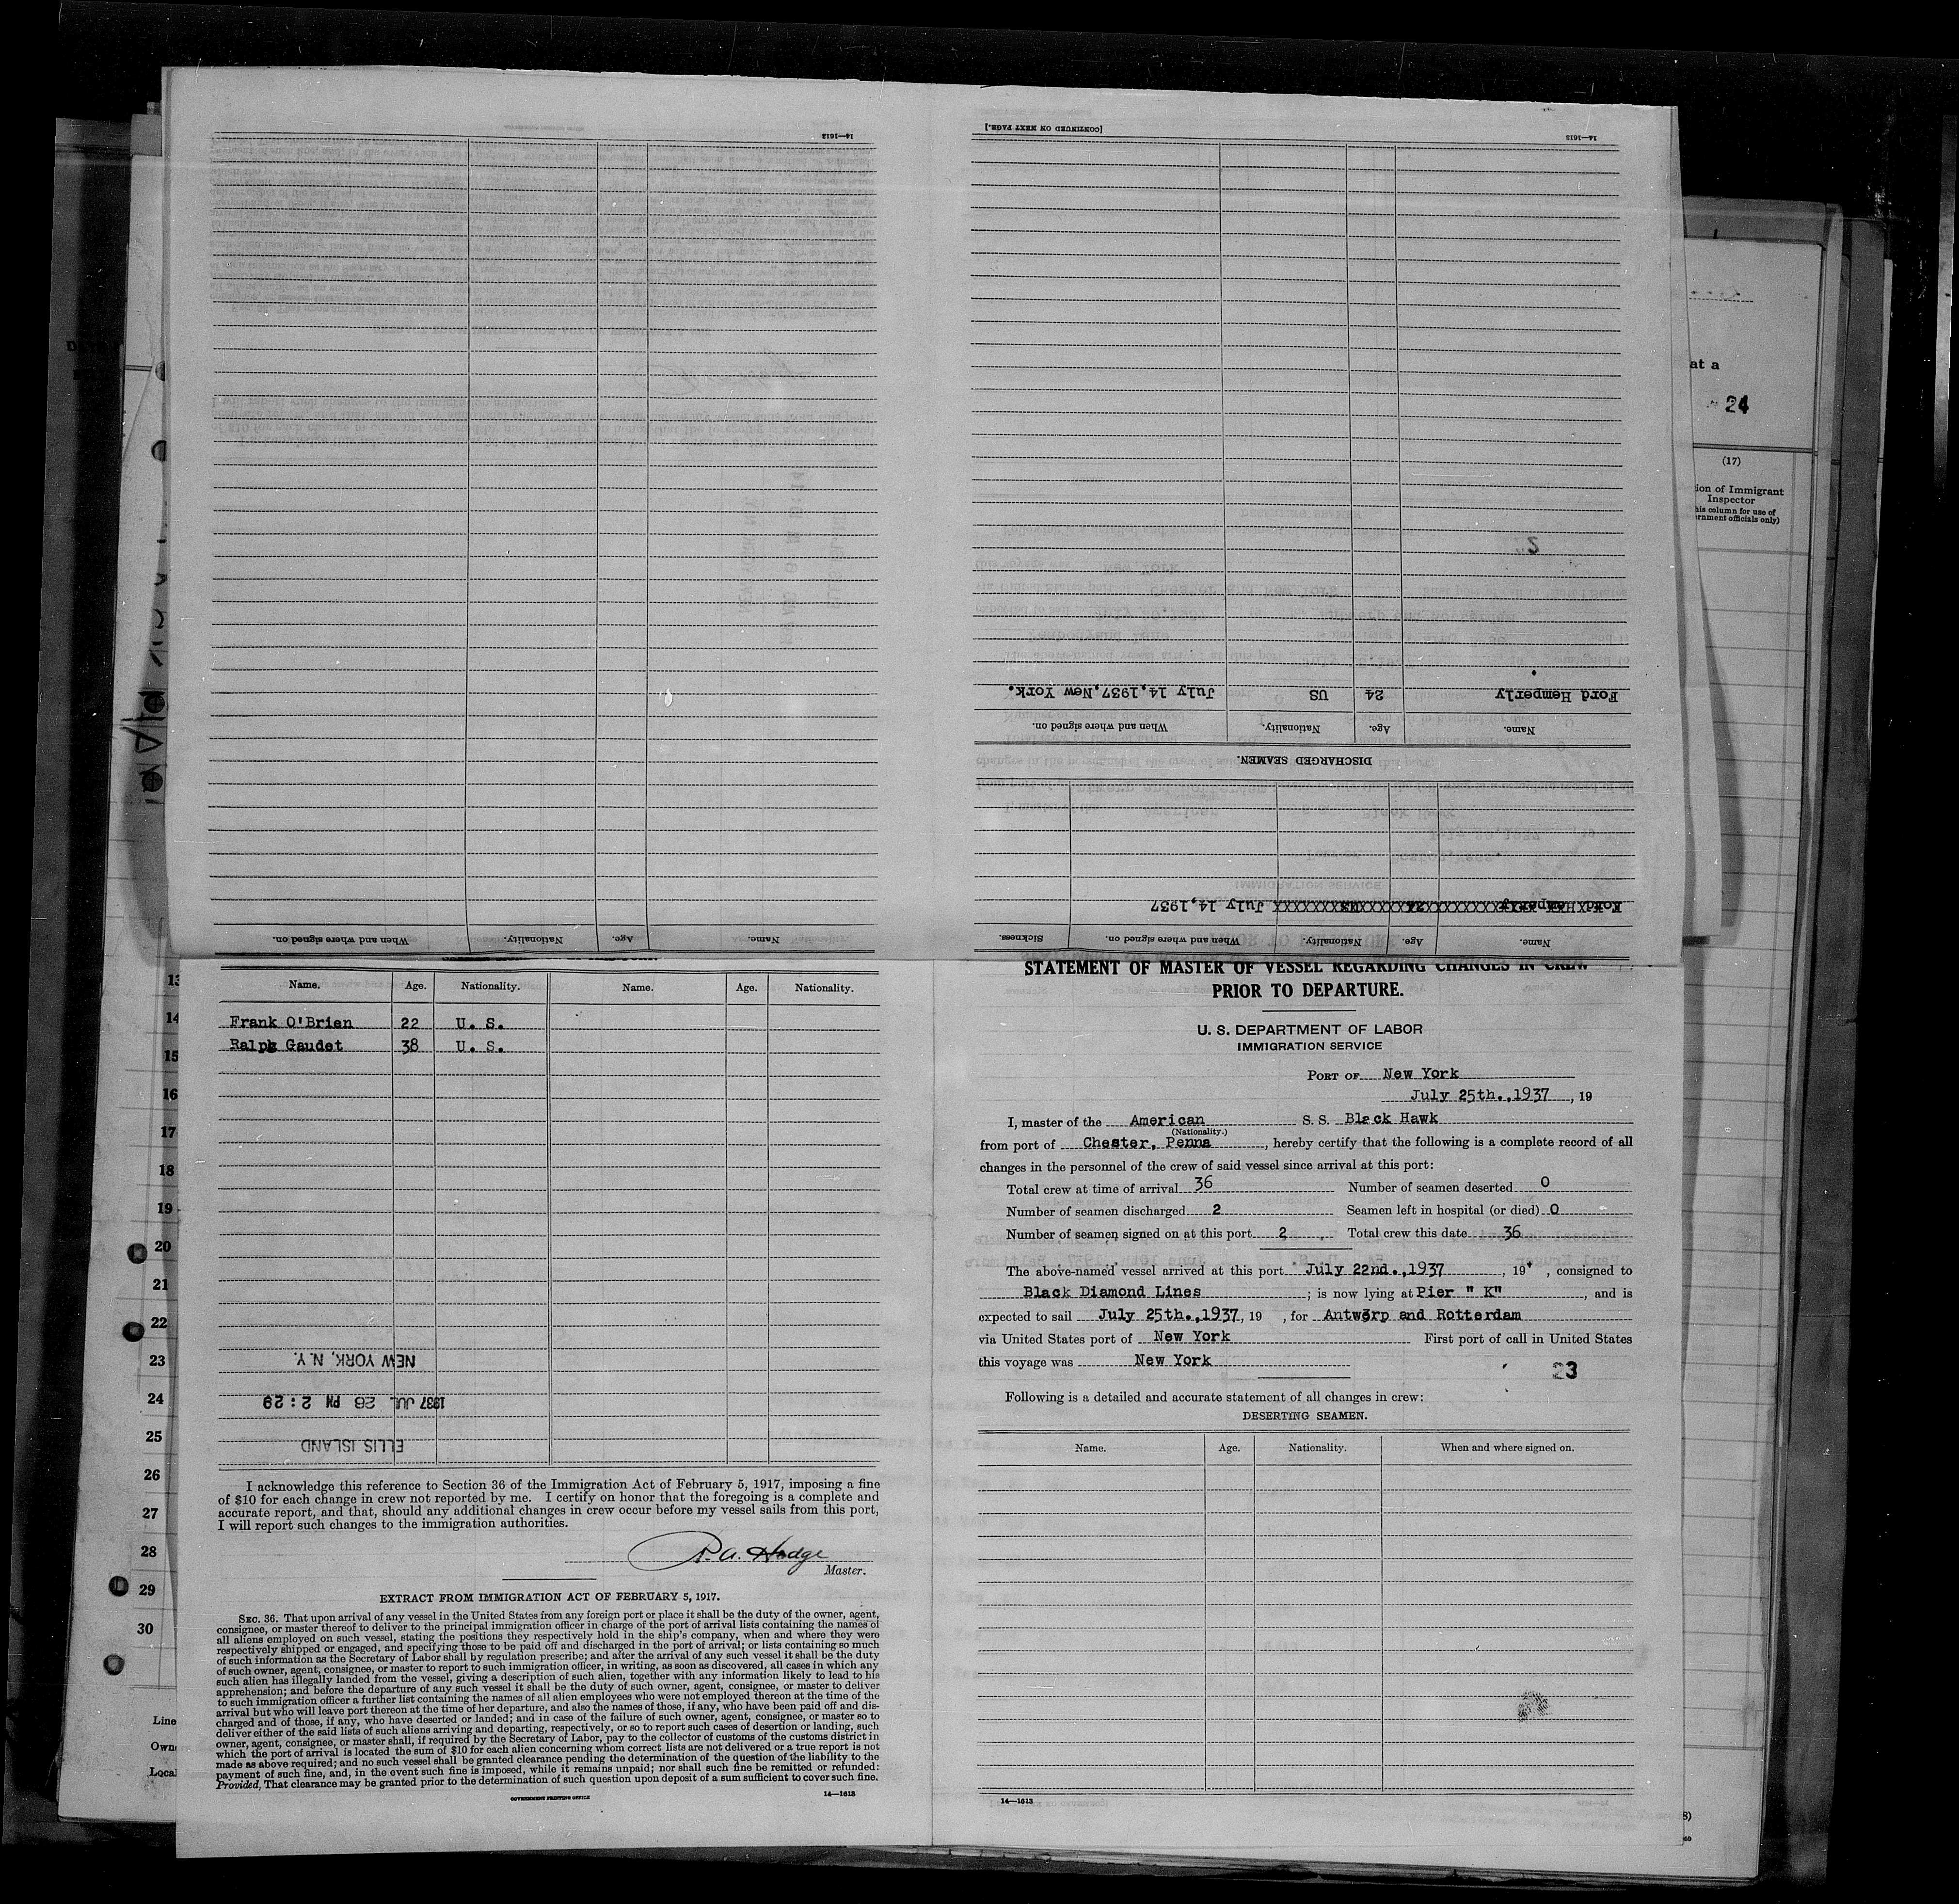 14—1613
[CONTINUED ON NEXT PAGE.]
14—1613
Ford Hemperly 24 US July 14,1937,New York.
Name. Age. Nationality. When and where signed on.
DISCHARGED SEAMEN.
July 14,1937
Name. Age. Nationality. When and where signed on.
Name. Age. Nationality. When and where signed on. Sickness.
at a
24
(17)
ion of Immigrant
Inspector
his column for use of
ernment officials only)
Name. Age. Nationality. Name. Age. Nationality.
Frank O'Brien 22 U. S.
Ralph Gaudet 38 U. S.
13
14
15
16
17
18
19
20
21
22
23
24
25
26
27
28
29
30
Line
Own
Local
NEW YORK, N. Y.
1937 JUL 26 PM 2:29
ELLIS ISLAND
I acknowledge this reference to Section 36 of the Immigration Act of February 5, 1917, imposing a fine
of $10 for each change in crew not reported by me. I certify on honor that the foregoing is a complete and
accurate report, and that, should any additional changes in crew occur before my vessel sails from this port,
I will report such changes to the immigration authorities.
R. A. Hodge
Master.
EXTRACT FROM IMMIGRATION ACT OF FEBRUARY 5, 1917.
SEC. 36. That upon arrival of any vessel in the United States from any foreign port or place it shall be the duty of the owner, agent,
consignee, or master thereof to deliver to the principal immigration officer in charge of the port of arrival lists containing the names of
all aliens employed on such vessel, stating the positions they respectively hold in the ship's company, when and where they were
respectively shipped or engaged, and specifying those to be paid off and discharged in the port of arrival; or lists containing so much
of such information as the Secretary of Labor shall by regulation prescribe; and after the arrival of any such vessel it shall be the duty
of such owner, agent, consignee, or master to report to such immigration officer, in writing, as soon as discovered, all cases in which any
such alien has illegally landed from the vessel, giving a description of such alien, together with any information likely to lead to his
apprehension; and before the departure of any such vessel it shall be the duty of such owner, agent, consignee, or master to deliver
to such immigration officer a further list containing the names of all alien employees who were not employed thereon at the time of the
arrival but who will leave port thereon at the time of her departure, and also the names of those, if any, who have been paid off and dis-
charged and of those, if any, who have deserted or landed; and in case of the failure of such owner, agent, consignee, or master so to
deliver either of the said lists of such aliens arriving and departing, respectively, or so to report such cases of desertion or landing, such
owner, agent, consignee, or master shall, if required by the Secretary of Labor, pay to the collector of customs of the customs district in
which the port of arrival is located the sum of $10 for each alien concerning whom correct lists are not delivered or a true report is not
made as above required; and no such vessel shall be granted clearance pending the determination of the question of the liability to the
payment of such fine, and, in the event such fine is imposed, while it remains unpaid; nor shall such fine be remitted or refunded:
Provided, That clearance may be granted prior to the determination of such question upon deposit of a sum sufficient to cover such fine.
GOVERNMENT PRINTING OFFICE 14—1613
STATEMENT OF MASTER OF VESSEL REGARDING CHANGES IN CREW
PRIOR TO DEPARTURE.
U. S. DEPARTMENT OF LABOR
IMMIGRATION SERVICE
PORT OF New York
July 25th.,1937 , 19
I, master of the American S. S. Black Hawk
(Nationality.)
from port of Chester, Penna , hereby certify that the following is a complete record of all
changes in the personnel of the crew of said vessel since arrival at this port:
Total crew at time of arrival 36 Number of seamen deserted 0
Number of seamen discharged 2 Seamen left in hospital (or died) 0
Number of seamen signed on at this port 2 Total crew this date 36
The above-named vessel arrived at this port July 22nd.,1937 , 19 , consigned to
Black Diamond Lines ; is now lying at Pier " K" , and is
expected to sail July 25th.,1937, 19 , for Antw3rp and Rotterdam
via United States port of New York First port of call in United States
this voyage was New York
23
Following is a detailed and accurate statement of all changes in crew:
DESERTING SEAMEN.
Name. Age. Nationality. When and where signed on.
14—1613